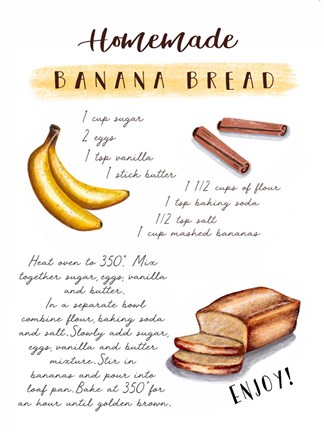 Homemade
BANANA BREAD
1 cup sugar
2 eggs
1 tsp vanilla
1 stick butter
1 1/2 cups of flour
1 tsp baking soda
1/2 tsp salt
1 cup mashed bananas
Heat oven to 350°. Mix
together sugar, eggs, vanilla
and butter.
In a separate bowl
combine flour, baking soda
and salt. Slowly add sugar,
eggs, vanilla and butter
mixture. Stir in
bananas and pour into
loaf pan. Bake at 350° for
an hour until golden brown.
ENJOY!